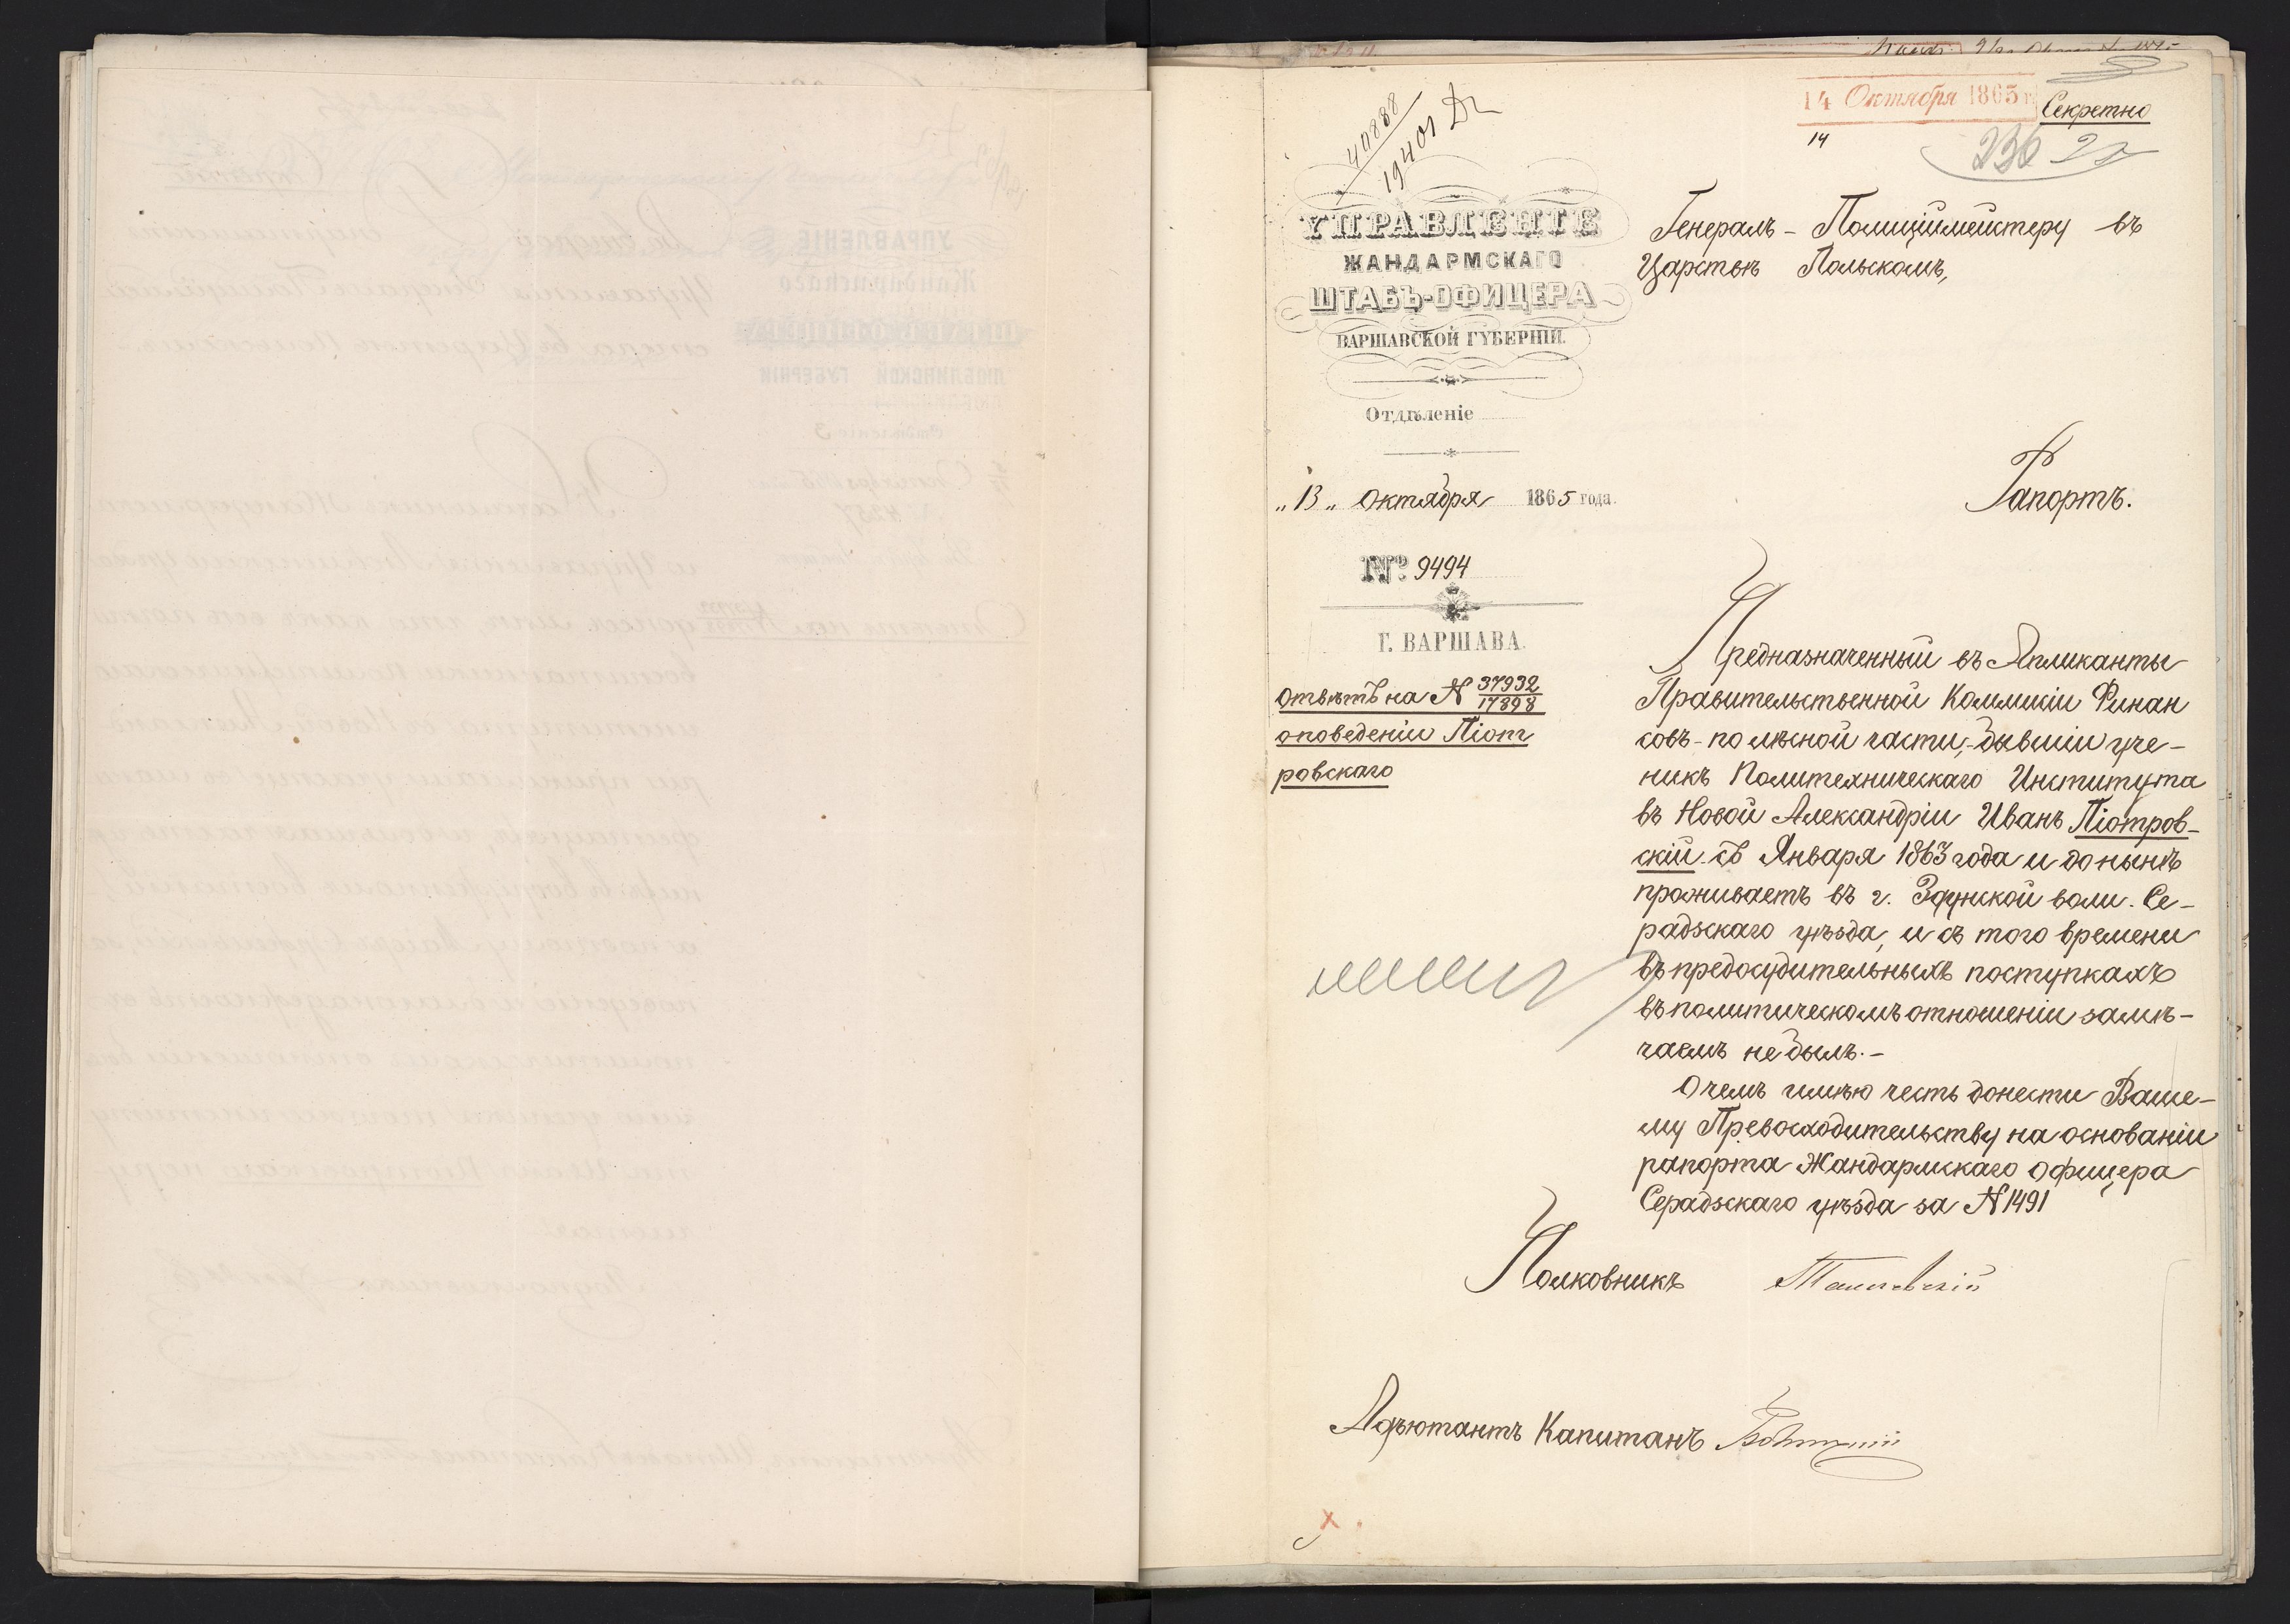 14 Октября 1865 г.
Секретно
14
236
40888
19401
УПРАВЛЕНІЕ
ЖАНДАРМСКАГО
ШТАБЪ-ОФИЦЕРА
ВАРШАВСКОЙ ГУБЕРНІИ.
Отдѣленіе
„13„ октября 1865 года.
№ 9494
Г. ВАРШАВА.
Отвѣтъ на № 37932
17898
о поведеніи Піот
ровскаго
Генералъ-Полиціймейстеру въ
Царствѣ Польскомъ,
Рапортъ.
Предназначенный въ Апликанты
Правительственной Коммисіи Финан
совъ-по лѣсной части,-бывшій уче-
никъ Политехническаго Института
въ Новой Александріи Иванъ Піотров-
скій съ Января 1863 года и до нынѣ
проживаетъ въ г. Здунской воли. Се-
радзскаго уѣзда, и съ того времени
въ предосудительныхъ поступкахъ
въ политическомъ отношеніи замѣ-
чаемъ не былъ.-
О чемъ имѣю честь донести Ваше-
му Превосходительству на основаніи
рапорта Жандармскаго Офицера
Серадзскаго уѣзда за № 1491
Полковникъ
Адъютантъ Капитанъ